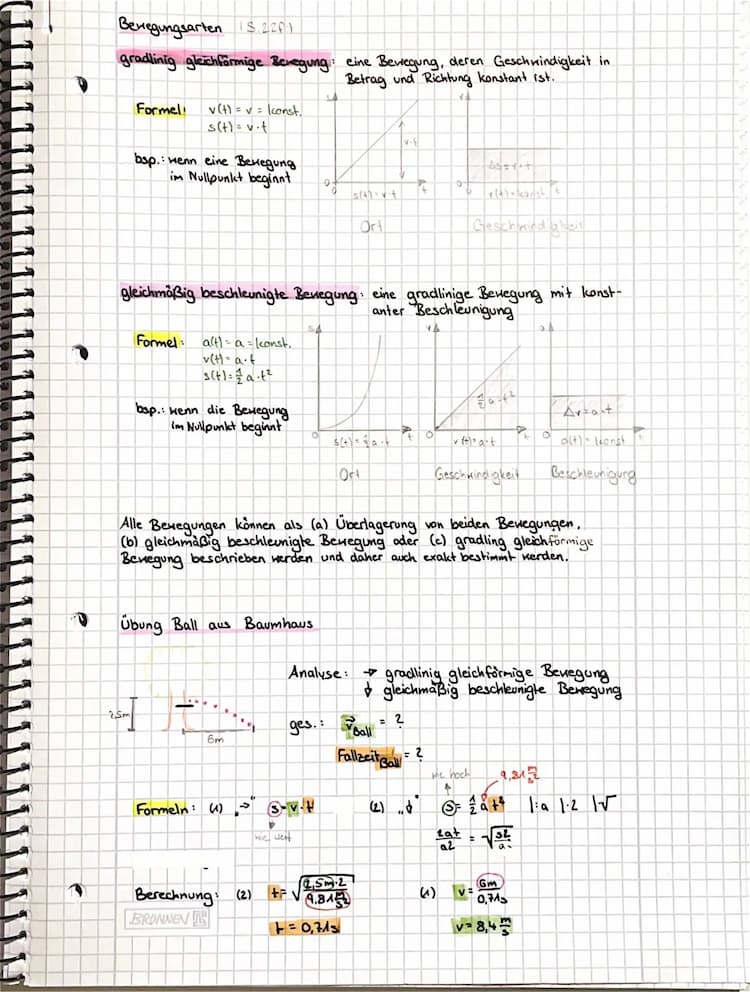 Bewegungsarten (S. 22f)
gradlinig gleichförmige Bewegung: eine Bewegung, deren Geschwindigkeit in
Betrag und Richtung konstant ist.
Formel: v(t) = v = konst.
s(t) = v · t
bsp.: wenn eine Bewegung
im Nullpunkt beginnt
s
v·t
0
0
t
s(t) = v · t
Ort
v
Δs = v · t
0
0
t
v(t) = konst
Geschwindigkeit
gleichmäßig beschleunigte Bewegung: eine gradlinige Bewegung mit konst-
anter Beschleunigung
Formel: a(t) = a = konst.
v(t) = a · t
s(t) = ½ a · t²
bsp.: wenn die Bewegung
im Nullpunkt beginnt
s
0
t
s(t) = ½ a · t
Ort
v
½ a · t²
0
t
v(t) = a · t
Geschwindigkeit
a
Δv = a · t
0
t
a(t) = konst
Beschleunigung
Alle Bewegungen können als (a) Überlagerung von beiden Bewegungen,
(b) gleichmäßig beschleunigte Bewegung oder (c) gradling gleichförmige
Bewegung beschrieben werden und daher auch exakt bestimmt werden.
Übung Ball aus Baumhaus
2,5m
6m
Analyse: → gradlinig gleichförmige Bewegung
↓ gleichmäßig beschleunigte Bewegung
ges.: v⃗Ball = ?
FallzeitBall = ?
wie hoch
9,81 m/s²
Formeln: (1) „→" s = v · t (2) „↓" s = ½ a t² |:a |·2 |√
wie weit
2at/a2 = √s2/a
Berechnung: (2) t = √2,5m·2/9,81 m/s² (1) v = 6m/0,71s
t = 0,71s v = 8,4 m/s
BRUNNEN